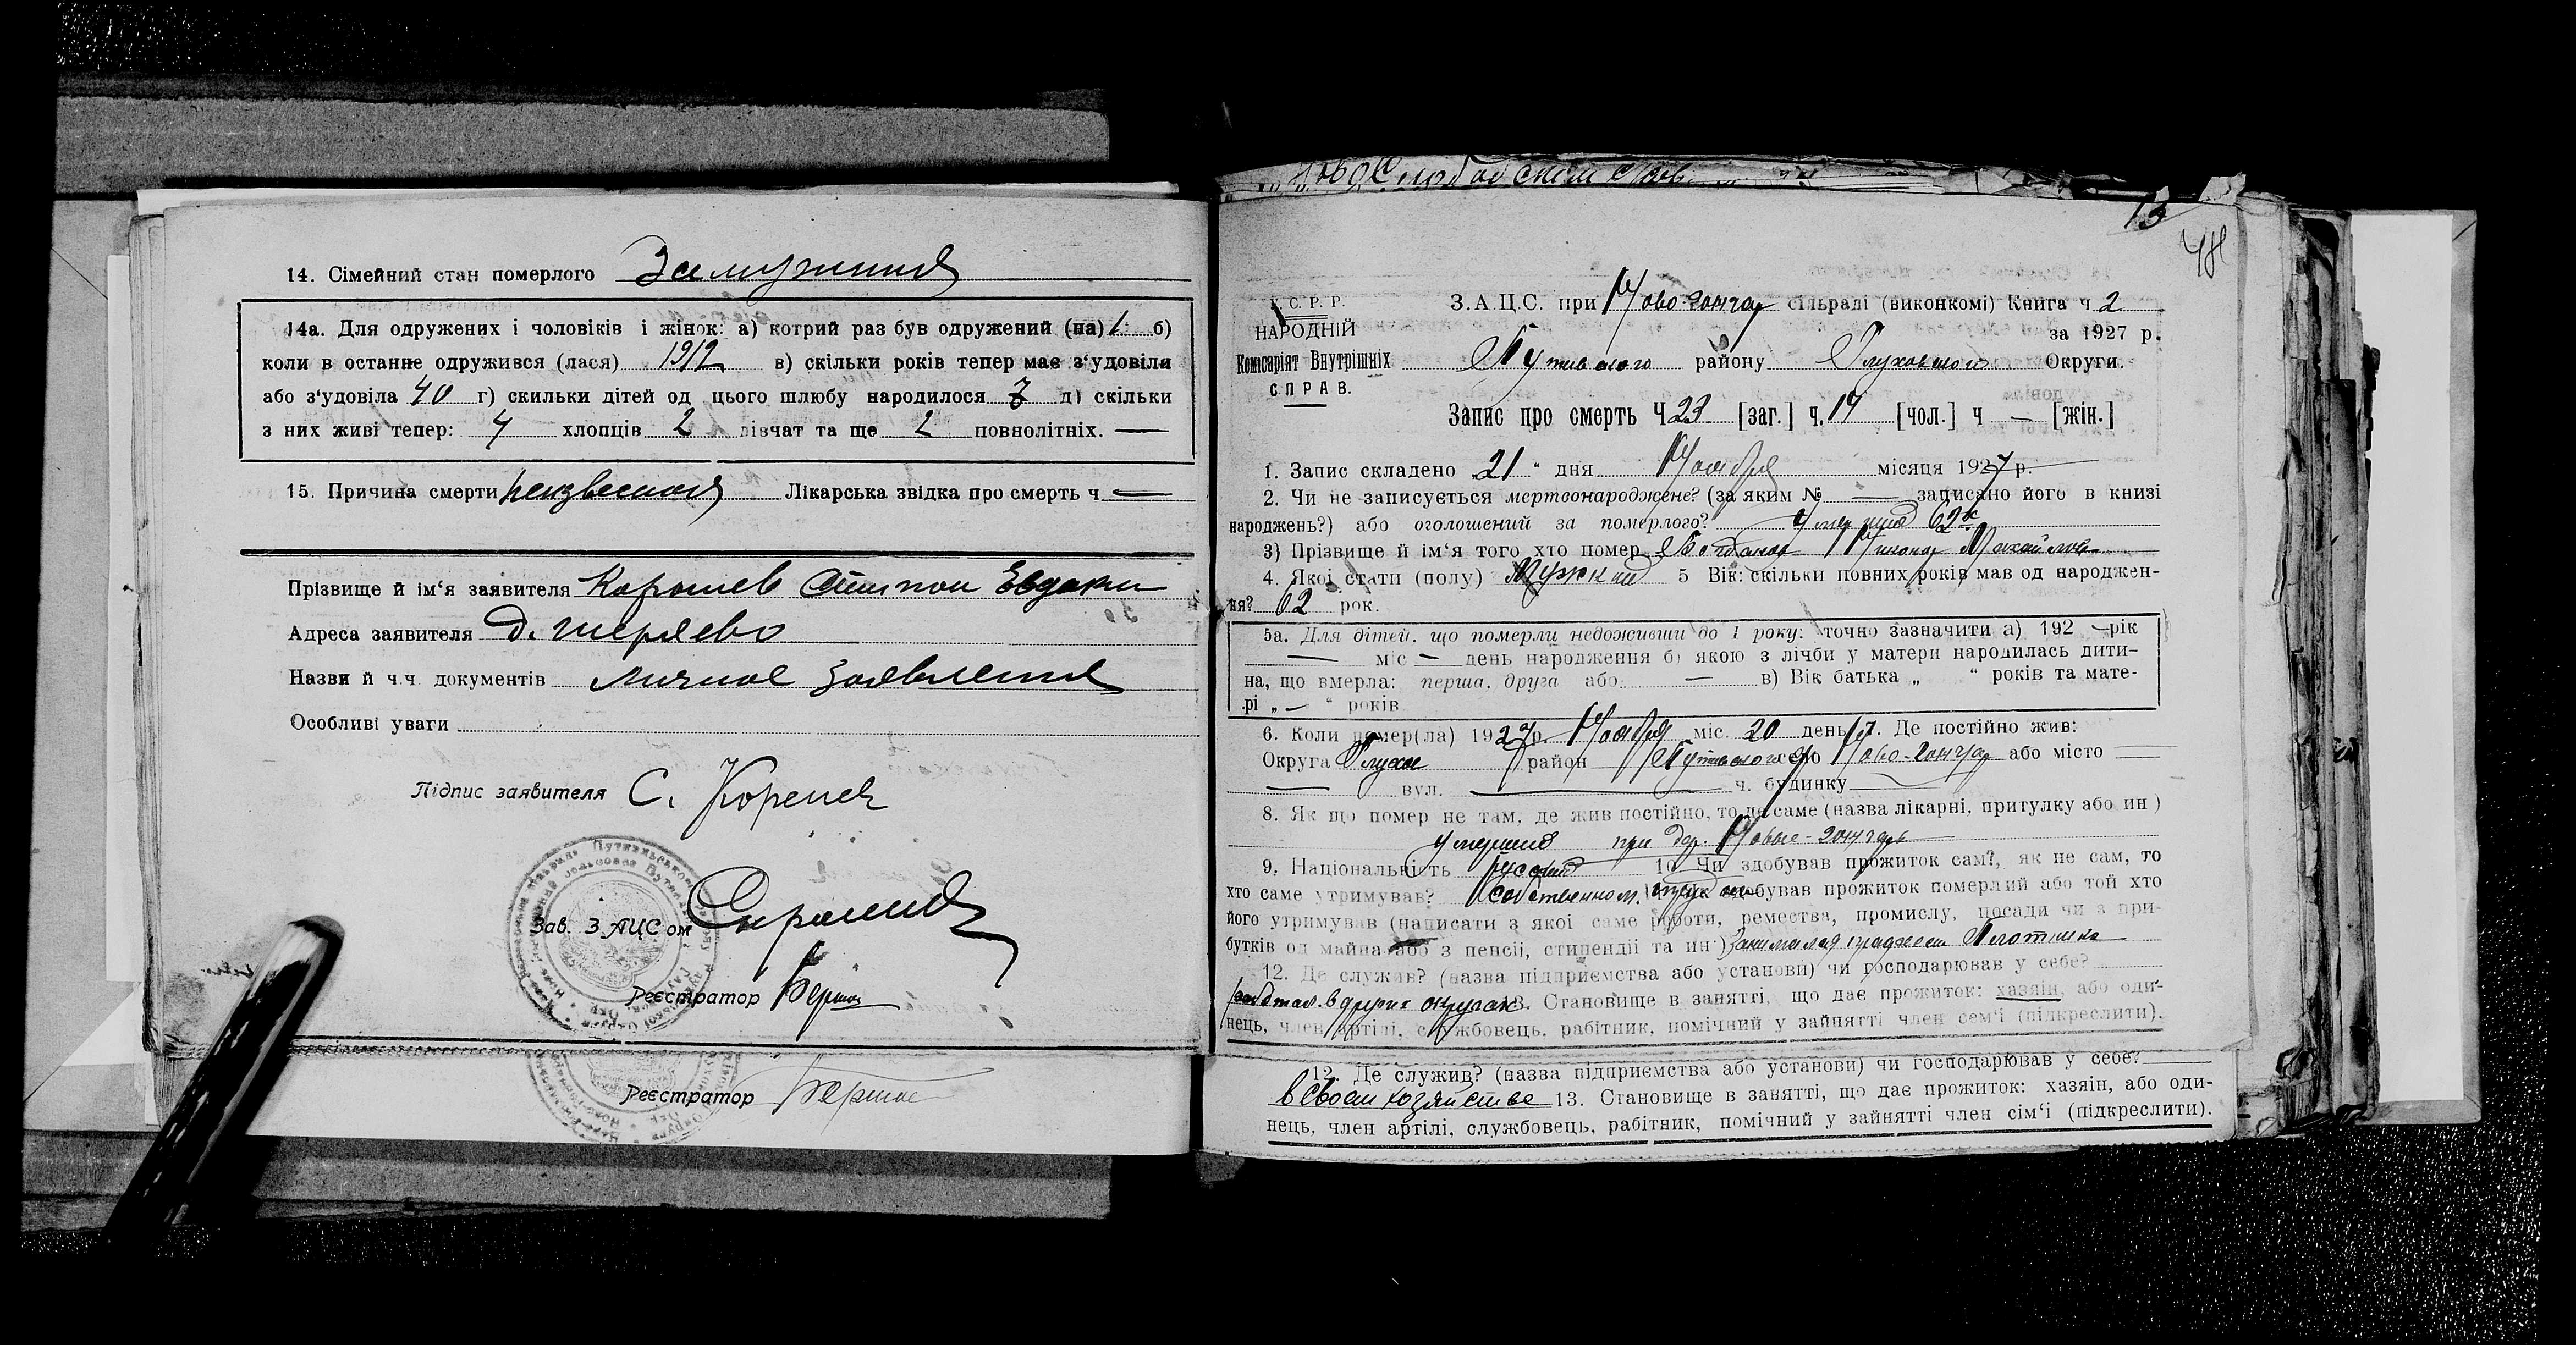 14. Сімейний стан померлого Замужния
14а. Для одружених і чоловіків і жінок: а) котрий раз був одружений (на) 1 б)
коли в останне одружився (лася) 1912 в) скільки років тепер має з'удовіли
або з'удовіла 40 г) скильки дітей од цього шлюбу народилося 7 д) скільки
з них живі тепер: 4 хлопців 2 дівчат та ще 2 повнолітніх. —
15. Причина смерти неизвесная Лікарська звідка про смерть ч. —
Прізвище й ім'я заявителя Степан Евдоки
Адреса заявителя д. ширяево
Назви й ч.ч. документів личное заявление
Особливі уваги
Підпис заявителя С. Коренев
Зав. ЗАЦС ом
Реєстратор
Реєстратор
13
48
У. С. Р. Р.
НАРОДНІЙ
Комісаріят Внутрішніх
СПРАВ.
З.А.Ц.С. при Ново-Гончар сільраді (виконкомі) Книга ч 2
за 1927 р.
Путивлского району Глуховского Округи.
Запис про смерть Ч 23 [заг.] ч. 14 [чол.] ч — [жін.]
1. Запис складено „21“ дня Ноября місяця 1927 р.
2. Чи не записується мертвонароджене? (за яким № — записано його в книзі
народжень?) або оголошений за померлого? умерший 62х
3) Прізвище й ім'я того хто помер Михайлов
4. Якої стати (полу) Мужский 5 Вік: скільки повних років мав од народжен-
ня? 62 рок.
5а. Для дітей, що померли недоживши до 1 року: точно зазначити а) 192 — рік
— міс — день народження б) якою з лічби у матери народилась дити-
на, що вмерла: перша, друга або — в) Вік батька „ “ років та мате-
рі „ — “ років
6. Коли помер(ла) 1927 р. Ноября міс. 20 день 7. Де постійно жив:
Округа Глухов район Путивлского село Ново-Гончар або місто —
— вул. — ч. будинку —
8. Як що помер не там, де жив постійно, то де саме (назва лікарні, притулку або ин)
умерший при дер. Новые-Гончары
9. Національність русский 10 Чи здобував прожиток сам?, як не сам, то
хто саме утримував? собственном. здобував прожиток померлий або той хто
його утримував (написати з якої саме роботи, ремества, промислу, посади чи з при-
бутків од майна або з пенсії, стипендії та ин) Занимался Плотника
12. Де служив? (назва підприємства або установи) чи господарював у себе?
работал в других округах 13. Становище в занятті, що дає прожиток: хазяїн, або оди-
нець, член артілі, службовець, рабітник, помічний у зайнятті член сем'ї (підкреслити).
12. Де служив? (назва підприємства або установи) чи господарював у себе?
в своем хозяйстве 13. Становище в занятті, що дає прожиток: хазяїн, або оди-
нець, член артілі, службовець, рабітник, помічний у зайнятті член сім'ї (підкреслити).